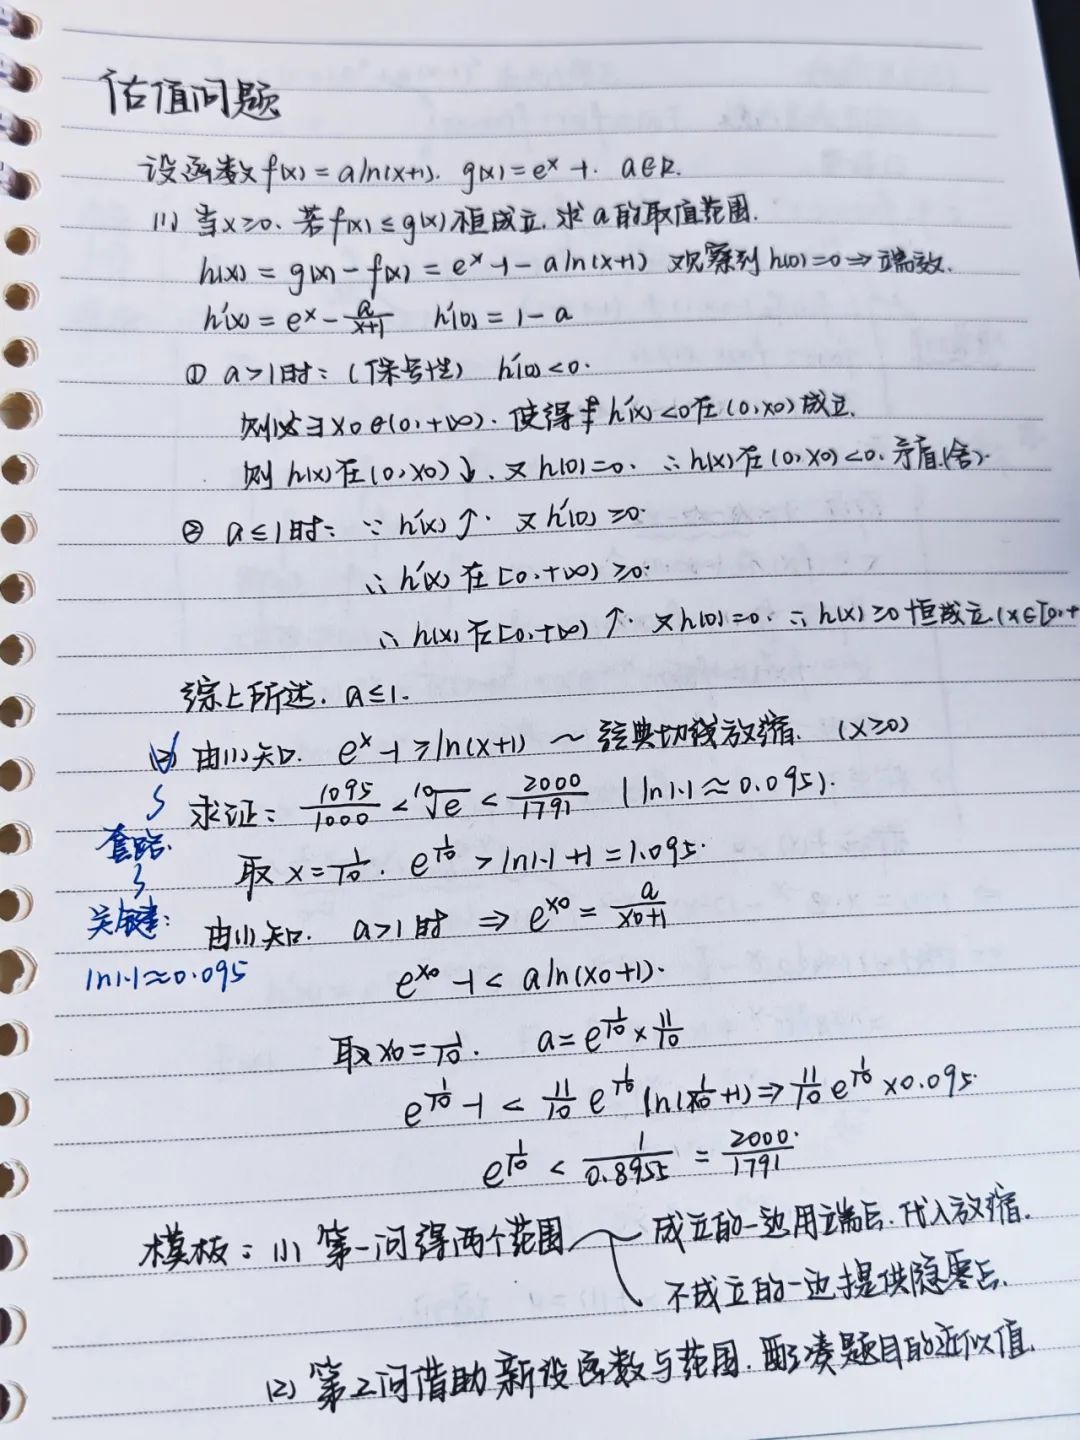 估值问题
设函数f(x)=aln(x+1). g(x)=e^x-1. a∈R.
(1) 当x≥0、若f(x)≤g(x)恒成立,求a的取值范围.
h(x)=g(x)-f(x)=e^x-1-aln(x+1) 观察到h(0)=0⇒端效.
h'(x)=e^x-a/(x+1) h'(0)=1-a
① a>1时:(保号性) h'(0)<0.
则必∃x0∈(0,+∞).使得h'(x)<0在(0,x0)成立.
则h(x)在(0,x0)↓、又h(0)=0、∴h(x)在(0,x0)<0、矛盾.(舍).
② a≤1时:∵h'(x)↑. 又h'(0)≥0.
∴h'(x)在[0,+∞)≥0.
∴h(x)在[0,+∞)↑. 又h(0)=0.∴h(x)≥0恒成立(x∈[0,+
综上所述. a≤1.
(2) 由(1)知. e^x-1≥ln(x+1) ~ 经典切线放缩. (x≥0)
求证:1095/1000<¹⁰√e<2000/1791 (ln1.1≈0.095).
套路.
取x=1/10. e^(1/10)>ln1.1+1=1.095.
关键:
由(1)知. a>1时⇒e^x0=a/(x0+1)
ln1.1≈0.095
e^x0-1<aln(x0+1).
取x0=1/10. a=e^(1/10)×11/10
e^(1/10)-1<11/10 e^(1/10) ln(1/10+1)⇒11/10 e^(1/10)×0.095.
e^(1/10)<1/0.8955=2000/1791.
模板:(1) 第一问得两个范围
成立的一边用端点.代入放缩.
不成立的一边提供隐零点.
(2) 第2问借助新设函数与范围.配凑题目的近似值.